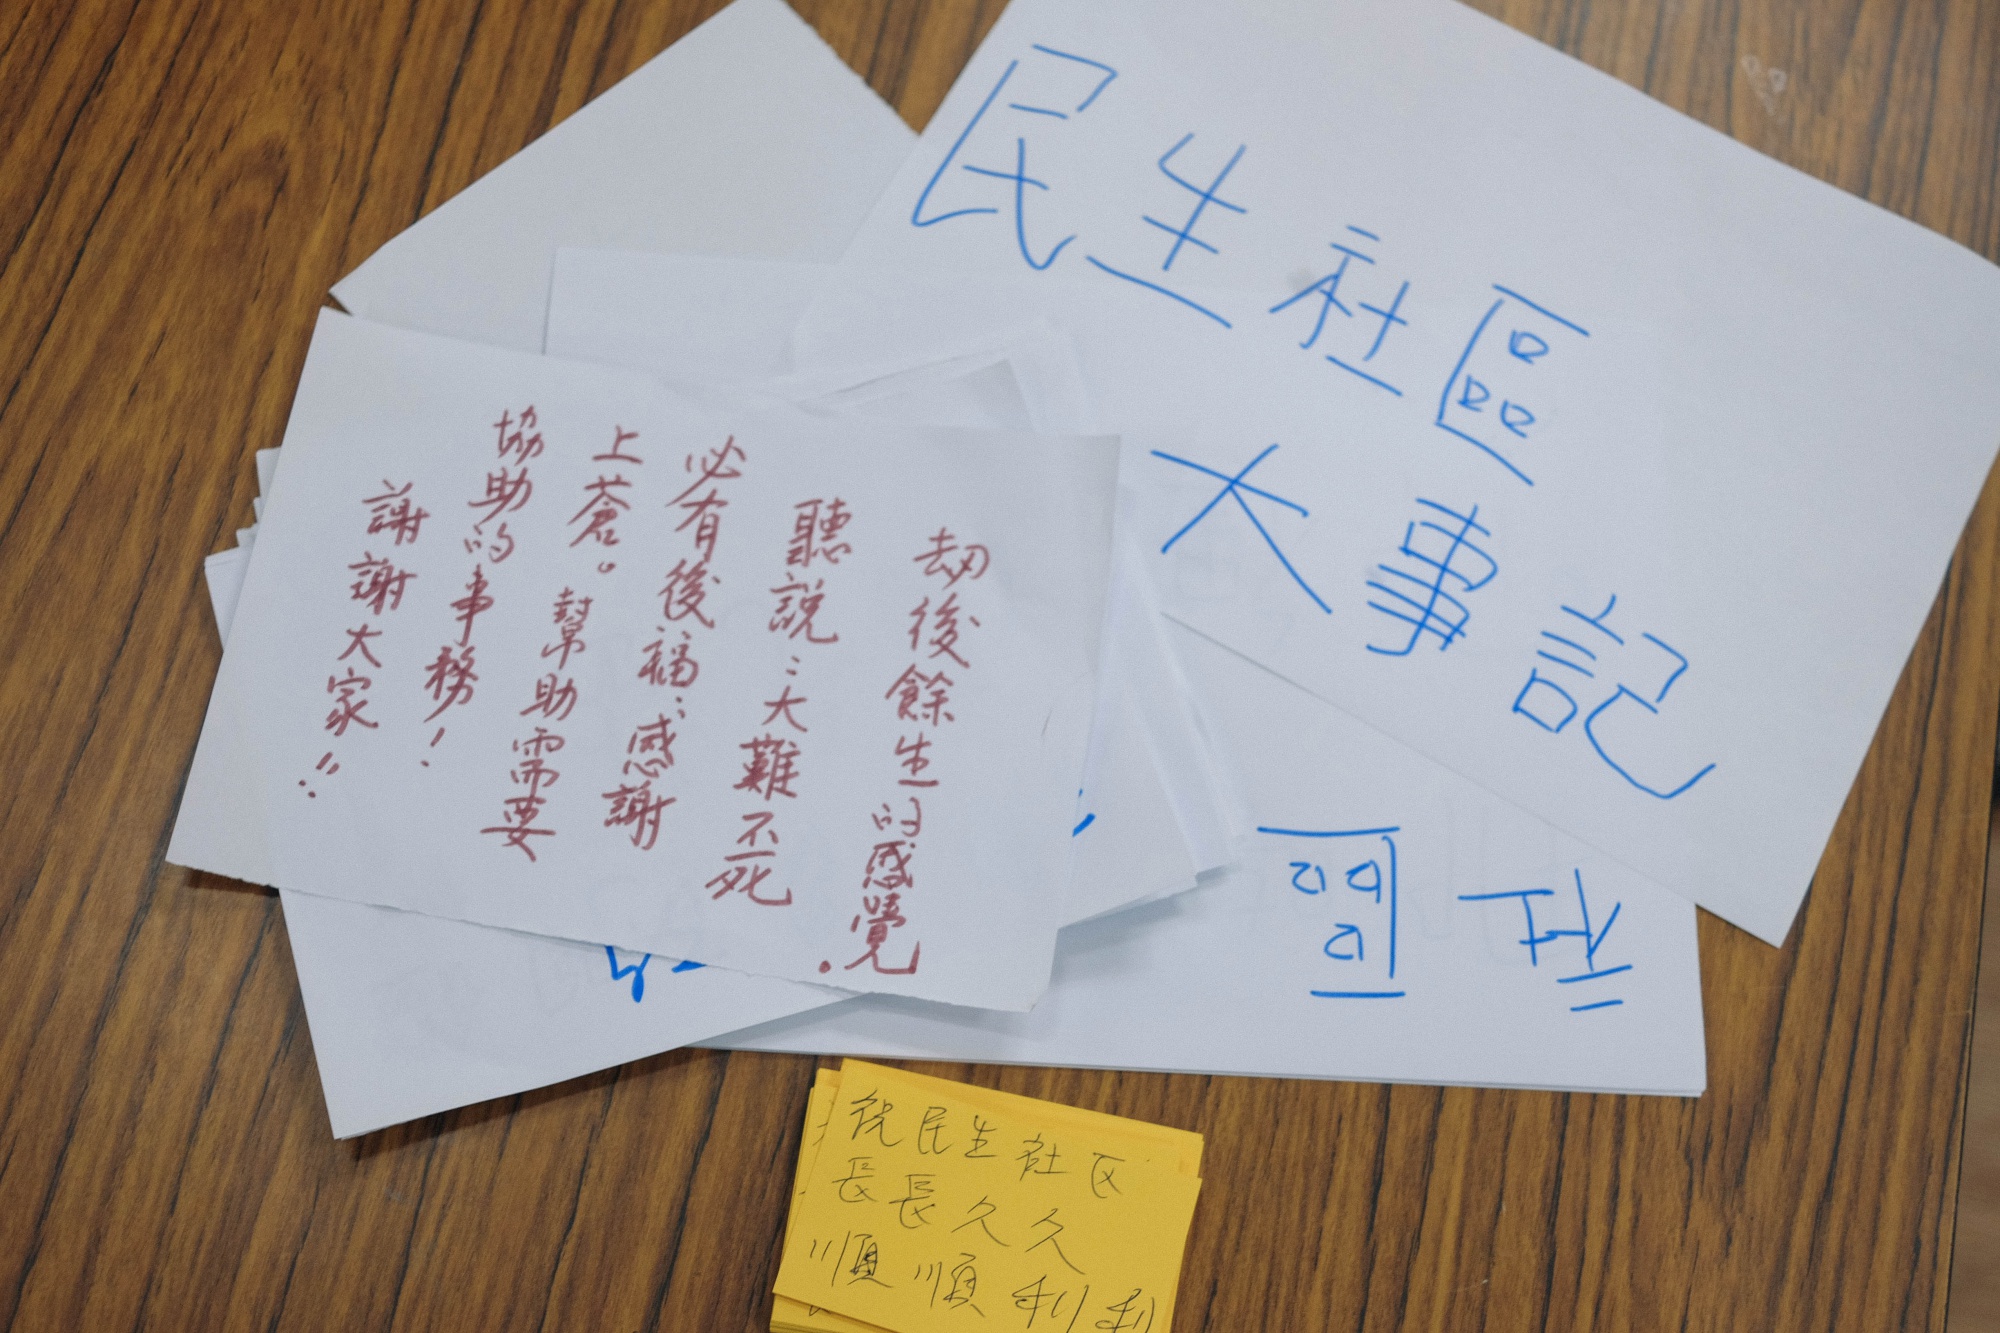 民生社區
大事記
劫後餘生的感覺.
聽說:大難不死
必有後福;感謝
上蒼。幫助需要
協助的事務!
謝謝大家!!
社區
祝民生社区
長長久久
順順利利